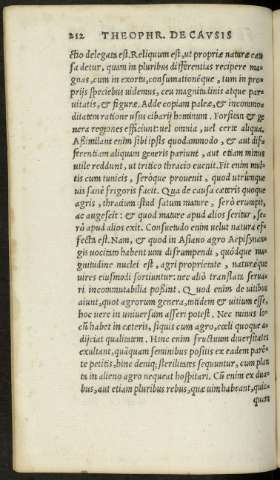 212 THEOPHR. DE CAVSIS
ctio delegata est. Reliquum est, ut propriæ naturæ cau
sa detur, quam in pluribus differentias recipere ma-
gnas, cum in exortu, consumationéque, tum in pro-
prijs speciebus uidemus, ceu magnitudinis atque par
uitatis, & figuræ. Adde copiam paleæ, & incommo
ditatem ratione usus cibarij hominum. Forsitan & ge
nera regiones efficiunt: uel omnia, uel certe aliqua.
Assimilant enim sibi ipsis quodammodo, & aut dif-
ferentiam aliquam generis pariunt, aut etiam minus
utile reddunt, ut tritico thracio euenit. Fit enim mul-
tis cum tunicis, seróque prouenit, quod utrunque
uis sanè frigoris facit. Qua de causa cæteris quoque
agris, thracium illud satum mature, serò erumpit,
ac augescit: & quod mature apud alios seritur, se-
rò apud alios exit. Consuetudo enim uelut natura ef-
fecta est. Nam, & quod in Asiano agro
gis uocitatum habent uim disrumpendi, quódque ma-
gnitudine nuclei est, agri proprietate, naturæque
uires eiusmodi sortiuntur: nec aliò translati serua-
ri incommutabilia possint. Quod enim de uitibus
aiunt, quot agrorum genera, totidem & uitium esse,
hoc uere in uniuersum asseri potest. Nec minus lo-
cũ habet in cæteris, siquis cum agro, cœli quoque a-
dijciat qualitatem. Hinc enim fructuum diuersitates
exultant, quiquam seminibus positis ex eadem paren-
te petitis, hinc deniq; sterilitates sequuntur, cum plan
ta in alieno agro nequeat hospitari. Cũ enim ex dua-
bus, aut etiam pluribus rebus, quæ uim habeant,
quam